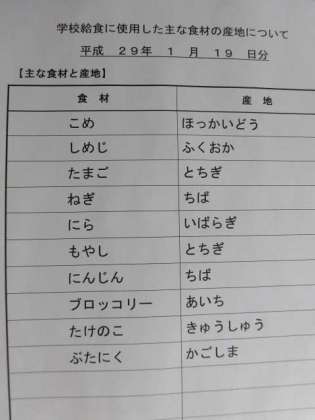 学校給食に使用した主な食材の産地について
平成 29年 1 月 19 日分
【主な食材と産地】
食 材 産 地
こめ ほっかいどう
しめじ ふくおか
たまご とちぎ
ねぎ ちば
にら いばらぎ
もやし とちぎ
にんじん ちば
ブロッコリー あいち
たけのこ きゅうしゅう
ぶたにく かごしま